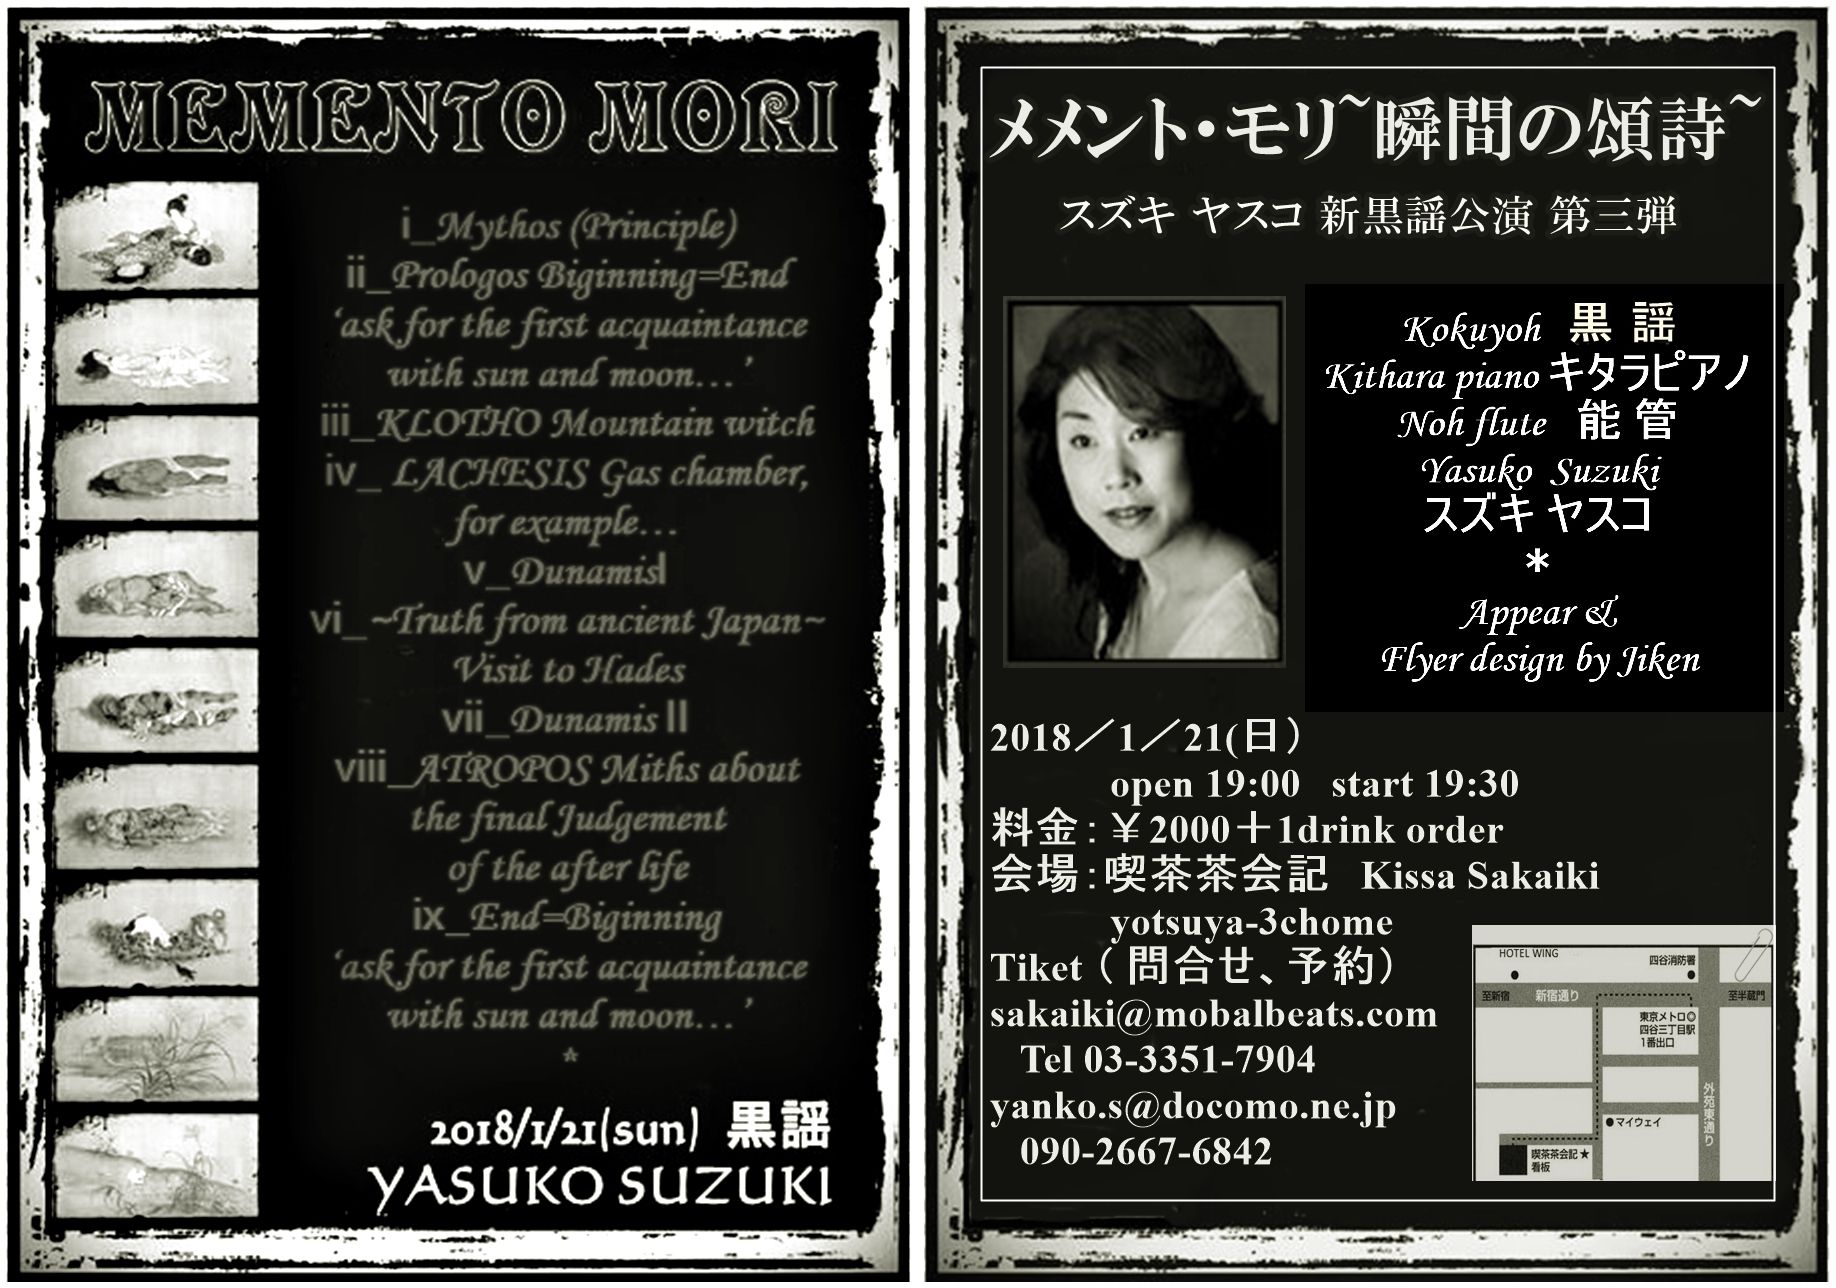 MEMENTO MORI
i_Mythos (Principle)
ii_Prologos Biginning=End
‘ask for the first acquaintance
with sun and moon…’
iii_KLOTHO Mountain witch
iv_ LACHESIS Gas chamber,
for example…
v_DunamisⅠ
vi_~Truth from ancient Japan~
Visit to Hades
vii_Dunamis Ⅱ
viii_ATROPOS Miths about
the final Judgement
of the after life
ix_End=Biginning
‘ask for the first acquaintance
with sun and moon…’
*
2018/1/21(sun) 黒謡
YASUKO SUZUKI
メメント・モリ~瞬間の頌詩~
スズキ ヤスコ 新黒謡公演 第三弾
Kokuyoh 黒 謡
Kithara piano キタラピアノ
Noh flute 能 管
Yasuko Suzuki
スズキ ヤスコ
*
Appear &
Flyer design by Jiken
2018／1／21(日）
open 19:00 start 19:30
料金：￥2000＋1drink order
会場：喫茶茶会記 Kissa Sakaiki
yotsuya-3chome
Tiket（ 問合せ、予約）
sakaiki@mobalbeats.com
Tel 03-3351-7904
yanko.s@docomo.ne.jp
090-2667-6842
HOTEL WING
四谷消防署
至新宿
新宿通り
至半蔵門
東京メトロ◎
四谷三丁目駅
1番出口
外苑東通り
●マイウェイ
喫茶茶会記★
看板